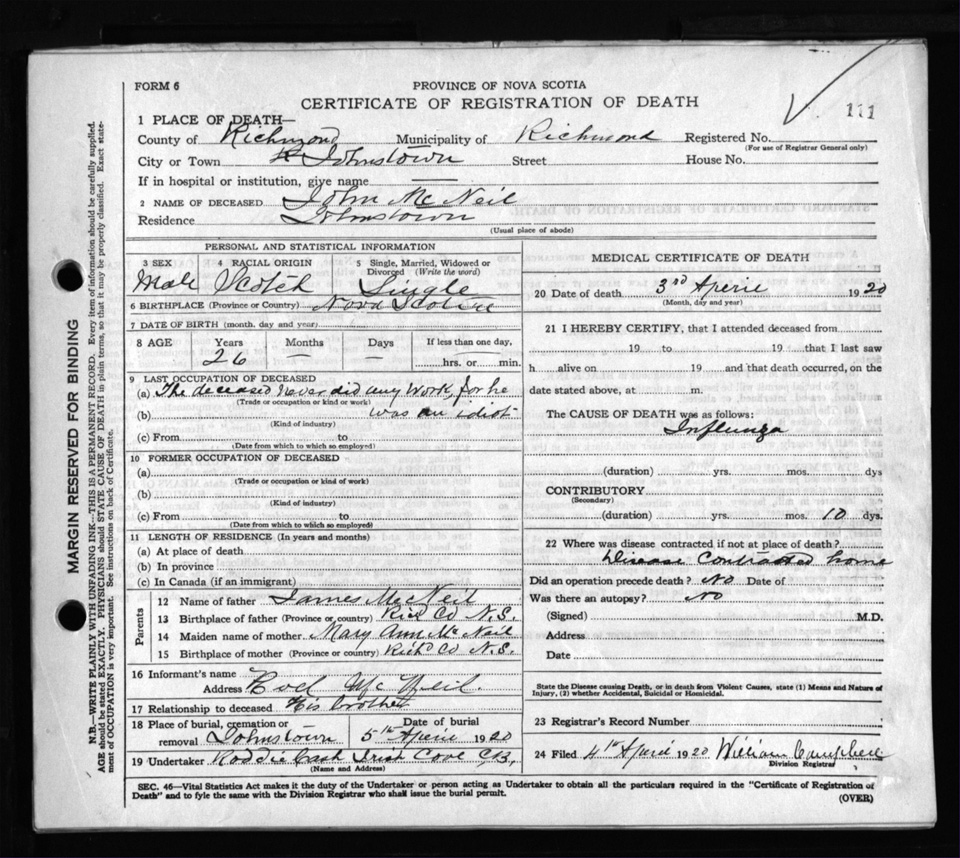 FORM 6
PROVINCE OF NOVA SCOTIA
CERTIFICATE OF REGISTRATION OF DEATH
111
1 PLACE OF DEATH—
County of Richmond Municipality of Richmond Registered No.
(For use of Registrar General only)
City or Town Johnstown Street House No.
If in hospital or institution, give name —
2 NAME OF DECEASED John McNeil
Residence Johnstown
(Usual place of abode)
PERSONAL AND STATISTICAL INFORMATION
3 SEX 4 RACIAL ORIGIN 5 Single, Married, Widowed or
Divorced (Write the word)
Male Scotch Single
6 BIRTHPLACE (Province or Country) Nova Scotia
7 DATE OF BIRTH (month, day and year)
8 AGE Years Months Days If less than one day,
26 — — hrs. or min.
9 LAST OCCUPATION OF DECEASED
(a) The deceased never did any work, for he
(Trade or occupation or kind or work)
(b) was an idiot
(Kind of industry)
(c) From to
(Date from which to which so employed)
10 FORMER OCCUPATION OF DECEASED
(a)
(Trade or occupation or kind of work)
(b)
(Kind of industry)
(c) From to
(Date from which to which so employed)
11 LENGTH OF RESIDENCE (In years and months)
(a) At place of death
(b) In province
(c) In Canada (if an immigrant)
Parents
12 Name of father James McNeil
13 Birthplace of father (Province or country) Rich Co N.S.
14 Maiden name of mother Mary Ann McNeil
15 Birthplace of mother (Province or country) Rich Co N.S.
16 Informant's name
Address McNeil
17 Relationship to deceased His brother
18 Place of burial, cremation or Date of burial
removal Johnstown 5th April 1920
19 Undertaker Roddie Cash Cove C.B.
(Name and Address)
MEDICAL CERTIFICATE OF DEATH
20 Date of death 3rd April 1920
(Month, day and year)
21 I HEREBY CERTIFY, that I attended deceased from
19 to 19 that I last saw
h alive on 19 and that death occurred, on the
date stated above, at m.
The CAUSE OF DEATH was as follows:
Influnza
(duration) yrs. mos. dys
CONTRIBUTORY
(Secondary)
(duration) yrs. mos. 10 dys.
22 Where was disease contracted if not at place of death?
Disease Contracted home
Did an operation precede death? No Date of
Was there an autopsy? No
(Signed) M.D.
Address
Date
State the Disease causing Death, or in death from Violent Causes, state (1) Means and Nature of
Injury, (2) whether Accidental, Suicidal or Homicidal.
23 Registrar's Record Number
24 Filed 4th April 1920 William Campbell
Division Registrar
SEC. 46—Vital Statistics Act makes it the duty of the Undertaker or person acting as Undertaker to obtain all the particulars required in the "Certificate of Registration of
Death" and to fyle the same with the Division Registrar who shall issue the burial permit.
(OVER)
MARGIN RESERVED FOR BINDING
N.B.—WRITE PLAINLY WITH UNFADING INK—THIS IS A PERMANENT RECORD. Every item of information should be carefully supplied.
AGE should be stated EXACTLY. PHYSICIANS should STATE CAUSE OF DEATH in plain terms, so that it may be properly classified. Exact state-
ment of OCCUPATION is very important. See instructions on back of Certificate.